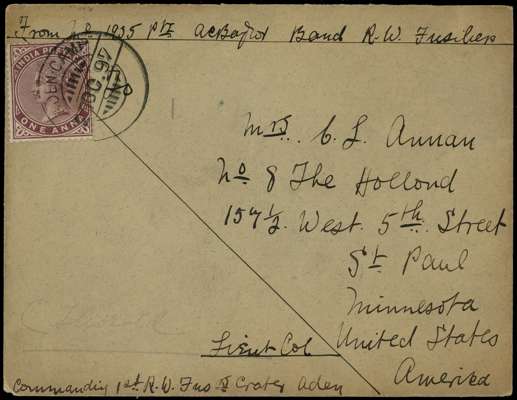 From No 1935 Pte Ac Band R.W. Fusiliers
INDIA POSTAGE
ONE ANNA
ADEN CAMP
DC 97
Mrs. C. L. Annan
No 8 The Holland
157 1/2 West 5th Street
St Paul
Minnesota
United States
America
Lieut Col
Commanding 1st R.W. Fus Crater Aden